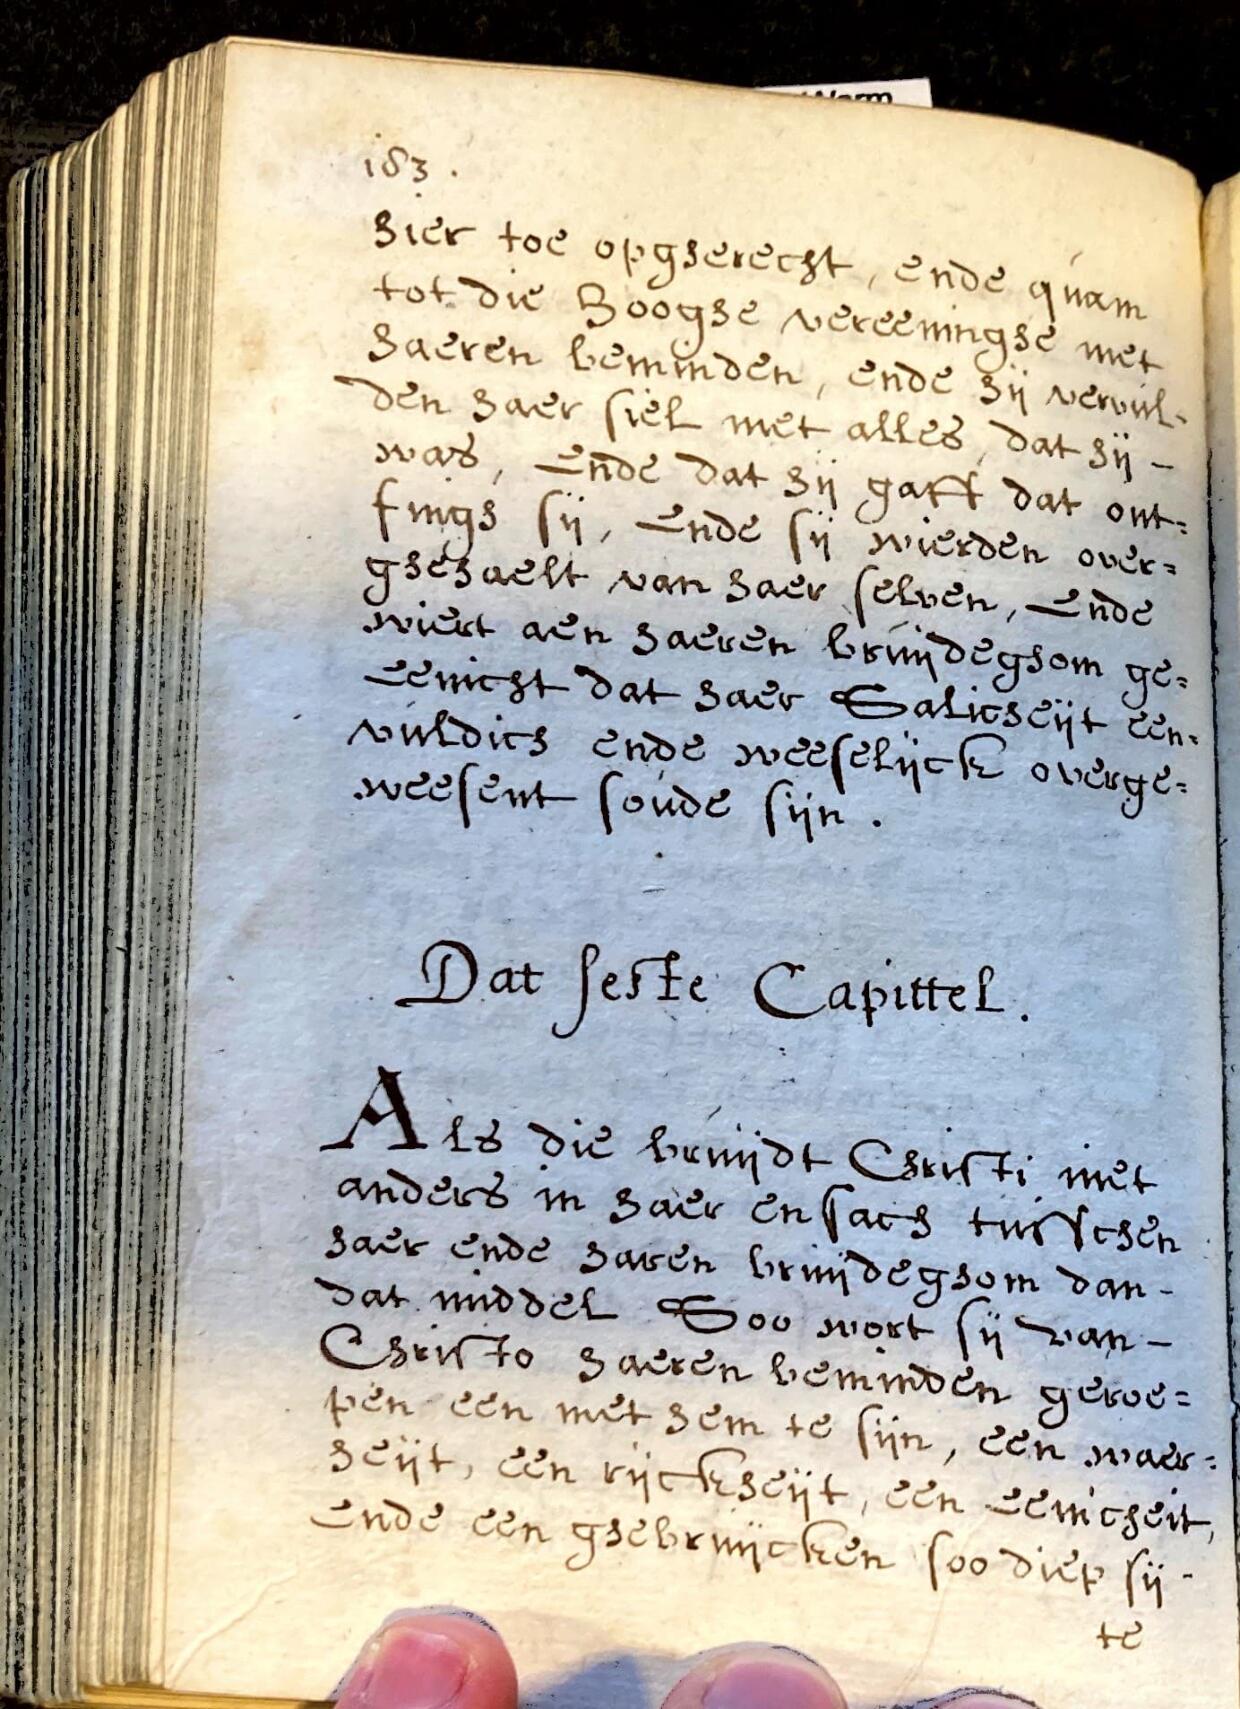 183.
hier toe opgherecht, ende quam
tot die hooghe vereeninghe met
haeren beminden, ende hij vervul-
den haer siel met alles, dat hij -
was, Ende dat hij gaff dat ont=
fingh sij, Ende sij wierden over=
ghehaelt van haer selven, Ende
wiert aen haeren bruijdeghom ge=
eenicht dat haer Salicheijt een-
vuldich ende weeselijck overge=
weesent soude sijn.
Dat seste Capittel.
Als die bruijdt Christi niet
anders in haer en sach tusschen
haer ende haren bruijdeghom dan -
dat middel Soo wort sij van -
Christo haeren beminden geroe=
pen een met hem te sijn, een waer=
heijt, een rijckheijt, een eenicheit,
Ende een ghebruijcken soo diep sij -
te